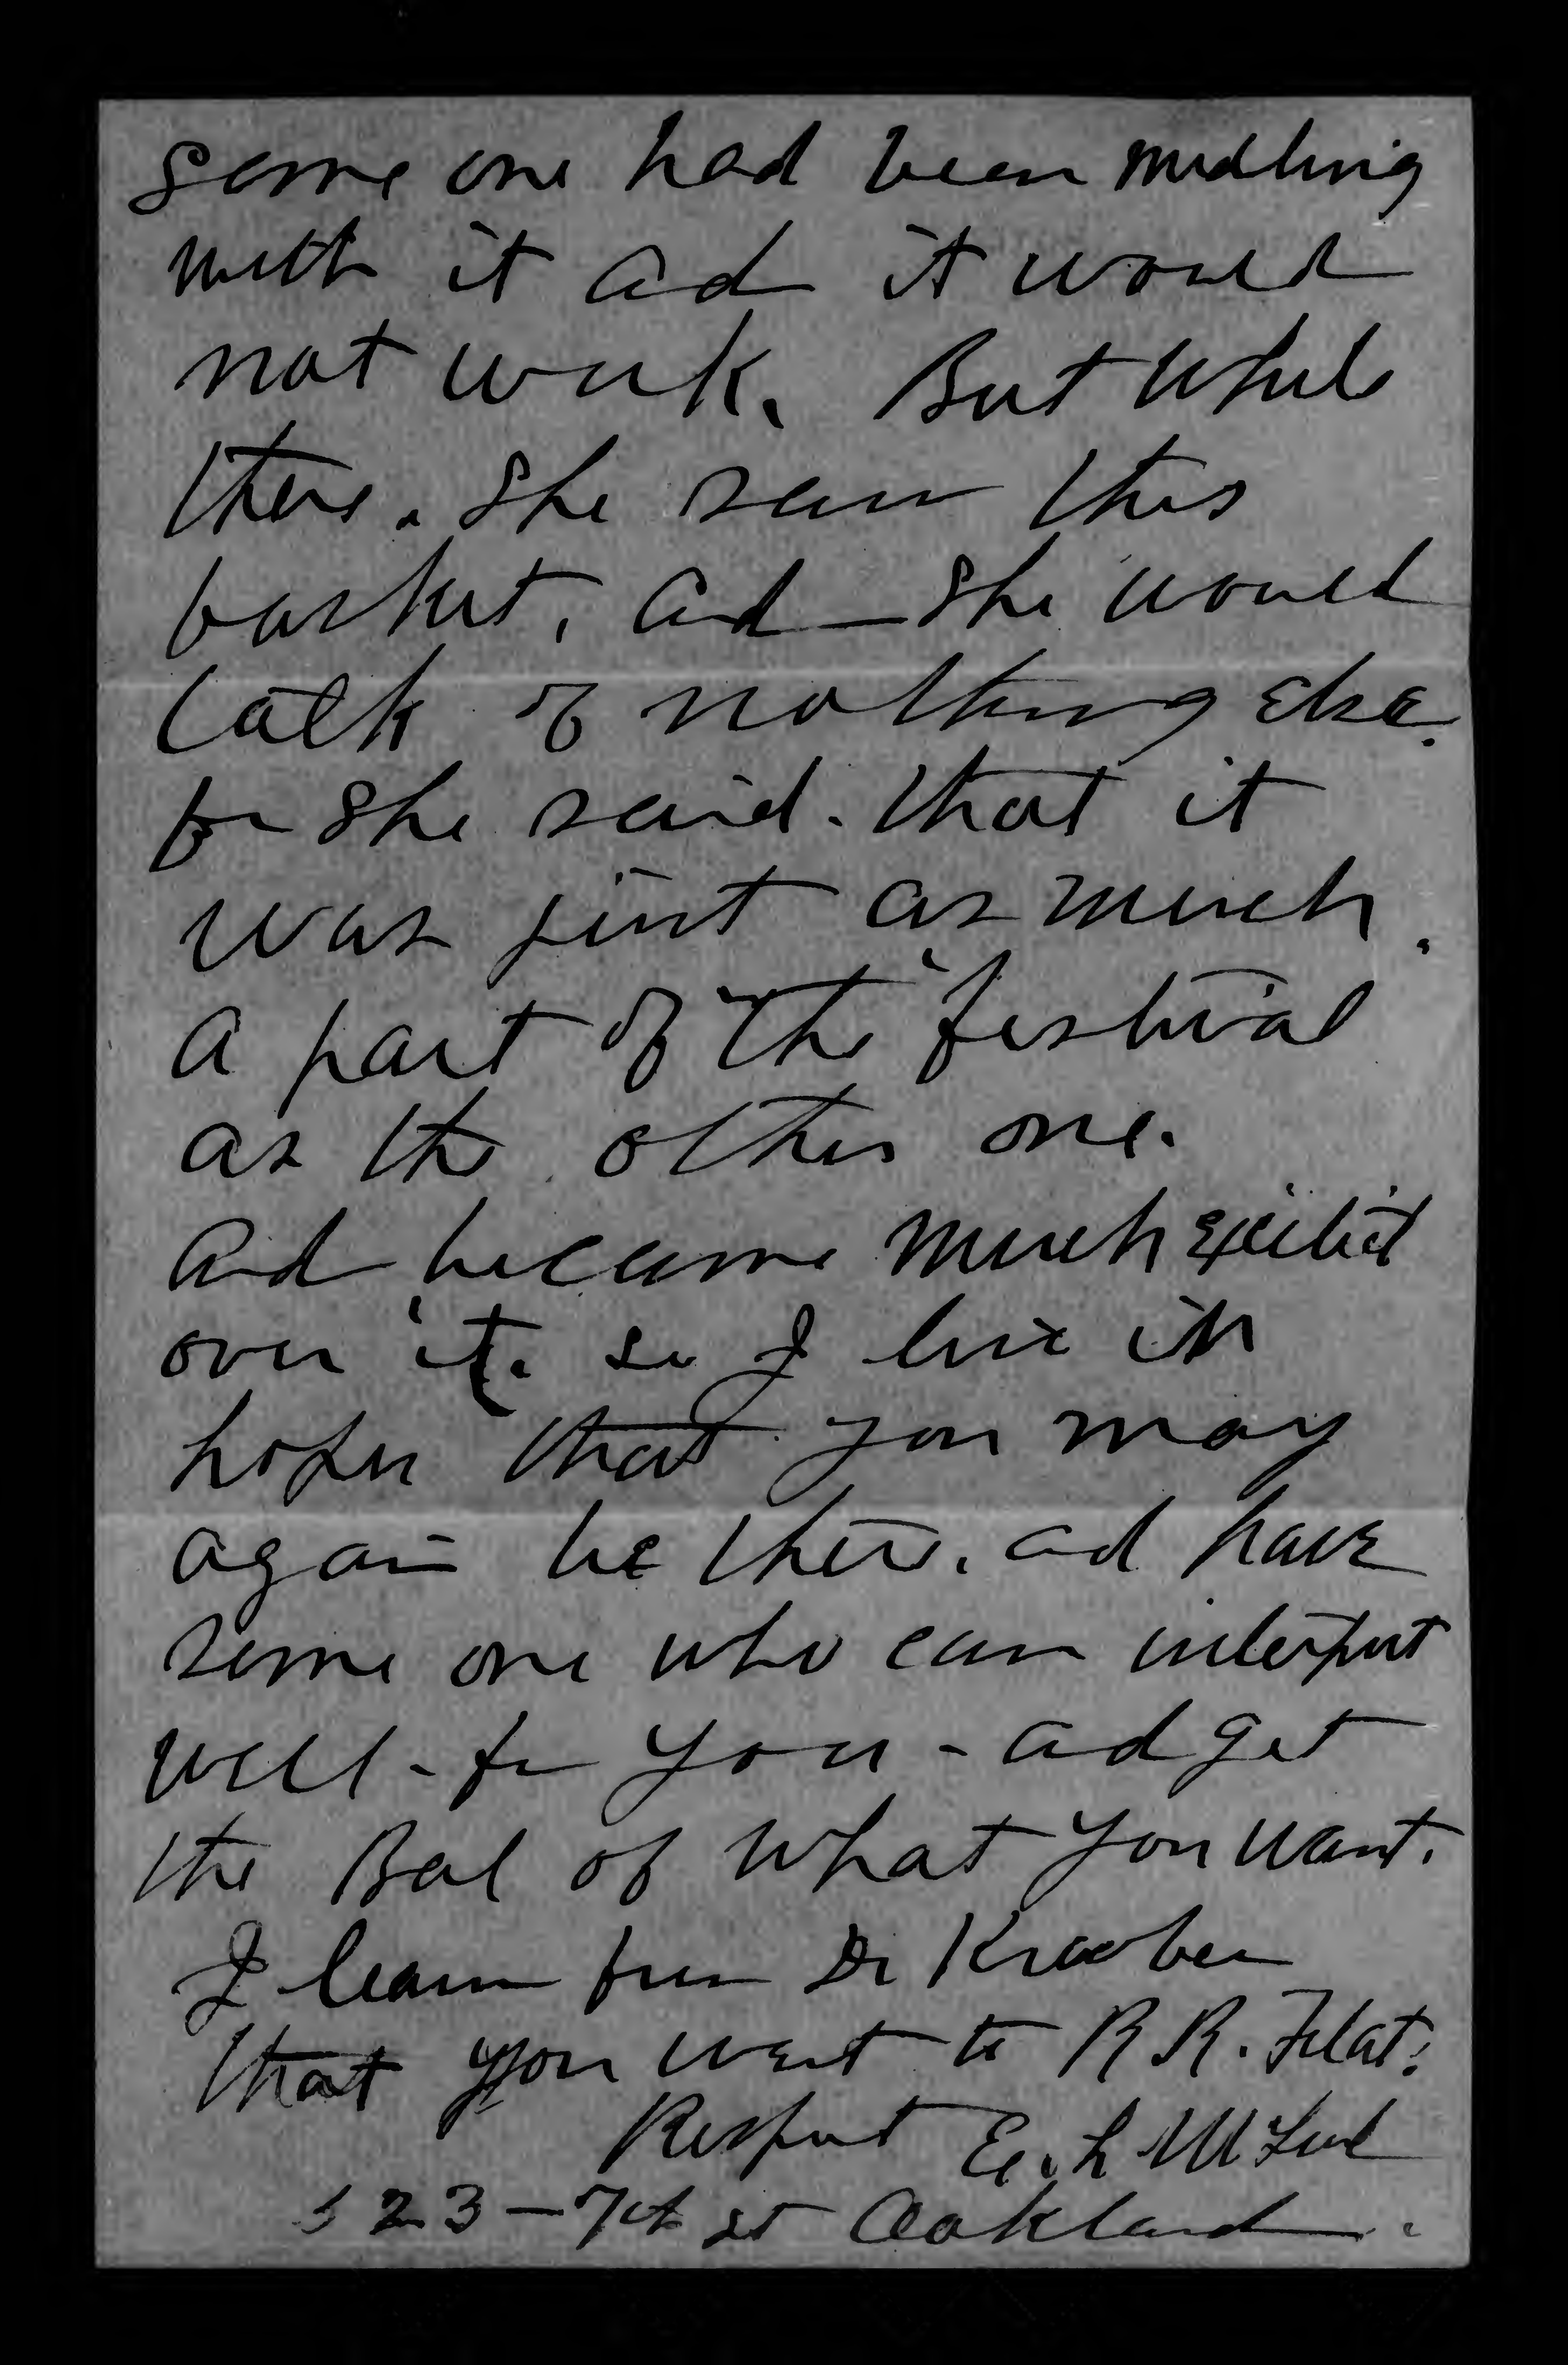 some one had been medling
with it ad it would
not work. But while
there. she saw this
basket, ad she would
talk of nothing else.
for she said. that it
was just as much
a part of the festival
as the other one.
And became much excited
over it. so I live in
hopes that you may
again be there. ad have
some one who can interput
well - for you - ad get
the Bal of what you want.
I learn from Dr Kroeber
that you went to R R. Flat.
Respect E. L
23 - 7th st Oakland